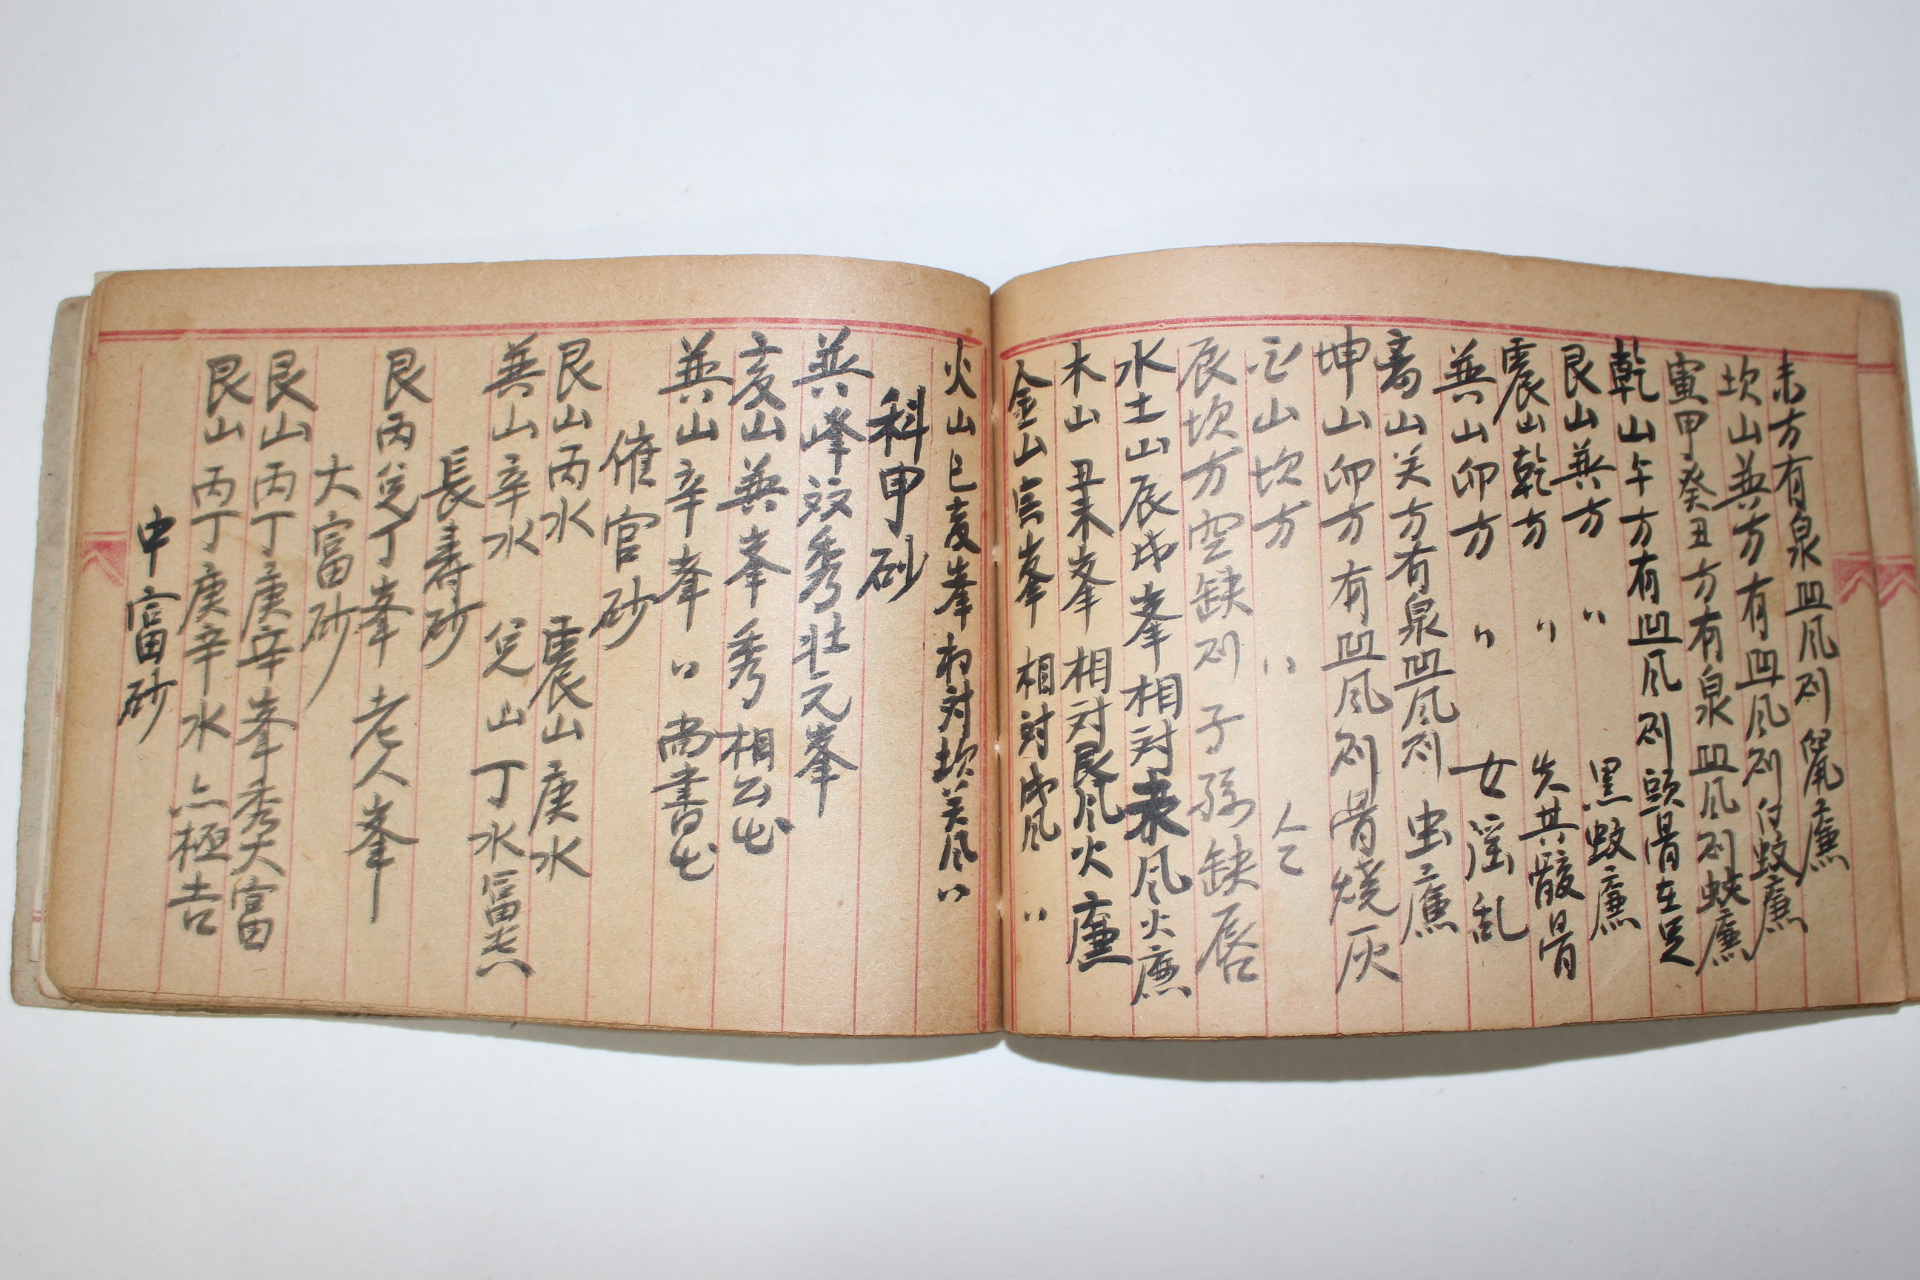 未方有泉凹風則鼠廉
坎山巽方有凹風則白蟻廉
寅甲癸丑方有泉凹風則蛇廉
乾山午方有凹風則頭骨在足
艮山巽方 〃 黑蚊廉
震山乾方 〃 失其骸骨
巽山卯方 〃 女淫乱
离山关方有泉凹風則 虫廉
坤山卯方 有凹風則骨燒灰
山坎方 〃 仝
辰坎方空缺則子孫缺唇
水土山辰戌峯相対 風火廉
木山 丑未峯 相対艮風火廉
金山 峯 相対 風 〃
火山巳亥峯相対坎关風〃
科甲砂
巽峰双秀壮元峯
亥山巽峯秀相公出
巽山辛峯〃尚書出
催官砂
艮山丙水 震山庚水
巽山辛水 兌山丁水富貴
長壽砂
艮丙兌丁峯 老人峯
大富砂
艮山丙丁庚辛峯秀大富
艮山丙丁庚辛水亦極吉
中富砂